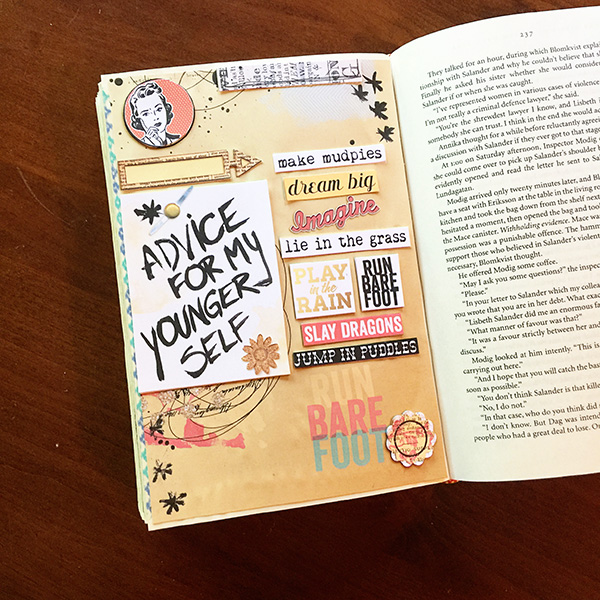 ADVICE
FOR MY
YOUNGER
SELF
make mudpies
dream big
Imagine
lie in the grass
PLAY
in the
RAIN
RUN
BARE
FOOT
SLAY DRAGONS
JUMP IN PUDDLES
RUN
BARE
FOOT
237
They talked for an hour, during which Blomkvist explai
ionship with Salander and why he couldn't believe that s
Finally he asked his sister whether she would consider
Salander if or when she was caught.
"I've represented women in various cases of violence
I'm not really a criminal defence lawyer," she said.
"You're the shrewdest lawyer I know, and Lisbeth i
somebody she can trust. I think in the end she would ac
Annika thought for a while before reluctantly agreei
a discussion with Salander if they ever got to that stage
At 1:00 on Saturday afternoon, Inspector Modig c
she could come over to pick up Salander's shoulder b
evidently opened and read the letter he sent to Sal
Lundagatan.
Modig arrived only twenty minutes later, and Bl
have a seat with Eriksson at the table in the living ro
kitchen and took the bag down from the shelf next
hesitated a moment, then opened the bag and took
the Mace canister. Withholding evidence. Mace was
possession was a punishable offence. The hamm
support those who believed in Salander's violent
necessary, Blomkvist thought.
He offered Modig some coffee.
"May I ask you some questions?" the inspec
"Please."
"In your letter to Salander which my colleag
you wrote that you are in her debt. What exac
"Lisbeth Salander did me an enormous fa
"What manner of favour was that?"
"It was a favour strictly between her and
discuss."
Modig looked at him intently. "This is
carrying out here."
"And I hope that you will catch the bas
soon as possible."
"You don't think Salander is that kille
"No, I do not."
"In that case, who do you think did
"I don't know. But Dag was intend
people who had a great deal to lose. On